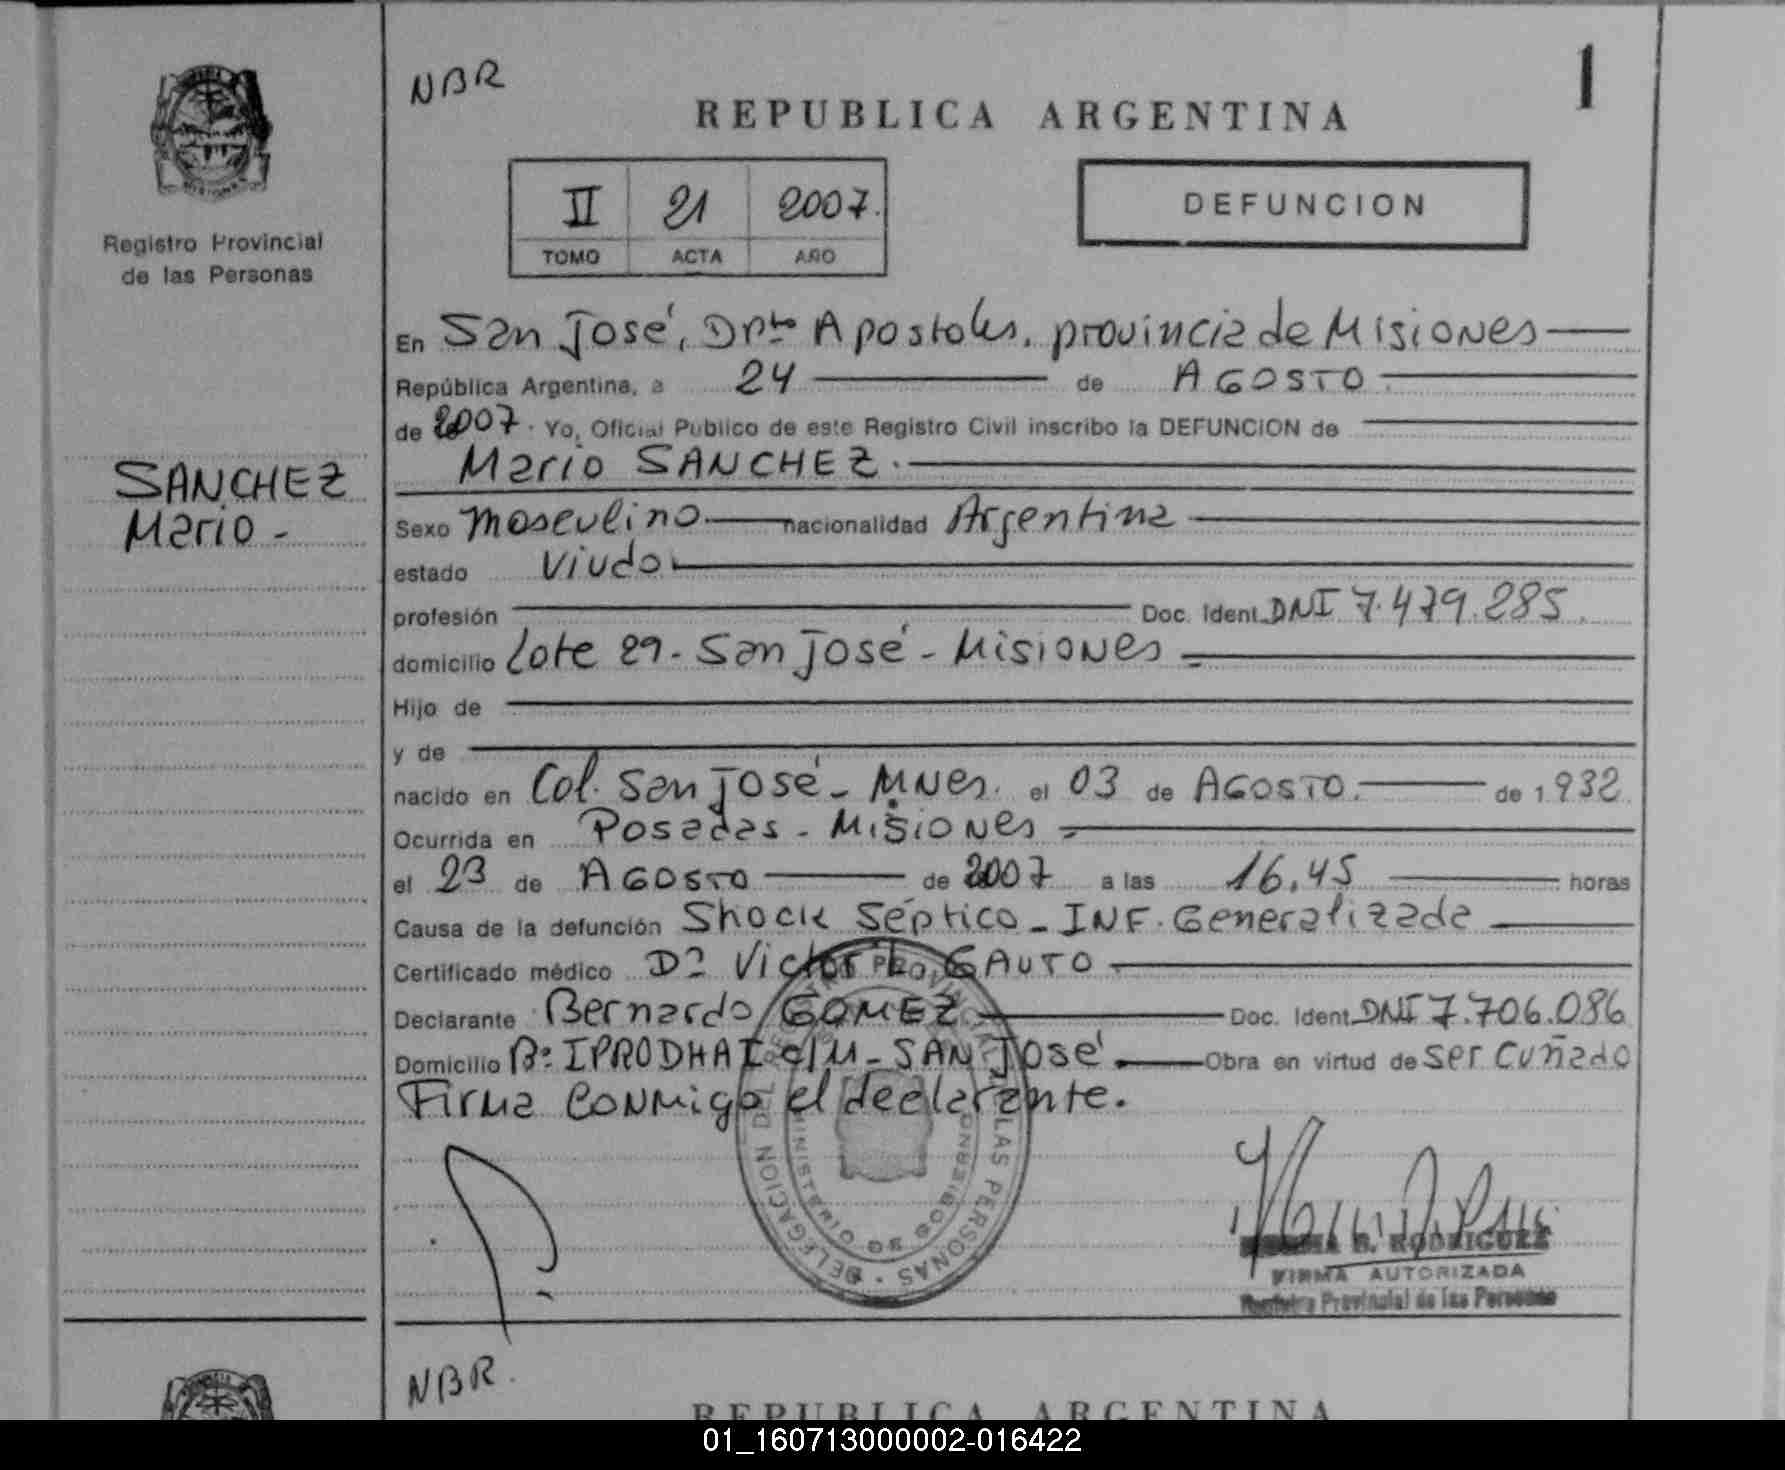 NBR
1
REPUBLICA ARGENTINA
II 21 2007.
TOMO ACTA AÑO
DEFUNCION
Registro Provincial
de las Personas
SANCHEZ
Mario -
En San José, Dpto Apostoles, provincia de Misiones
República Argentina, a 24 de AGOSTO
de 2007. Yo, Oficial Publico de este Registro Civil inscribo la DEFUNCION de
Mario SANCHEZ.
Sexo masculino nacionalidad Argentina
estado Viudo
profesión Doc. Ident. DNI 7.479.285.
domicilio Lote 29 - San José - Misiones -
Hijo de
y de
nacido en Col. San José - Mnes. el 03 de AGOSTO. de 1932
Ocurrida en Posadas - Misiones -
el 23 de AGOSTO de 2007 a las 16,45 horas
Causa de la defunción Shock Séptico - INF. Generalizada
Certificado médico Dr Victor L. GAUTO
Declarante Bernardo GOMEZ Doc. Ident. DNI 7.706.086
Domicilio Bº: IPRODHAI c/M - SAN José. Obra en virtud de ser cuñado
Firma conmigo el declarante.
DELEGACION DE LAS PERSONAS
MINISTERIO DE GOBIERNO
B. RODRIGUEZ
FIRMA AUTORIZADA
Registro Provincial de las Personas
NBR.
REPUBLICA ARGENTINA
01_160713000002-016422